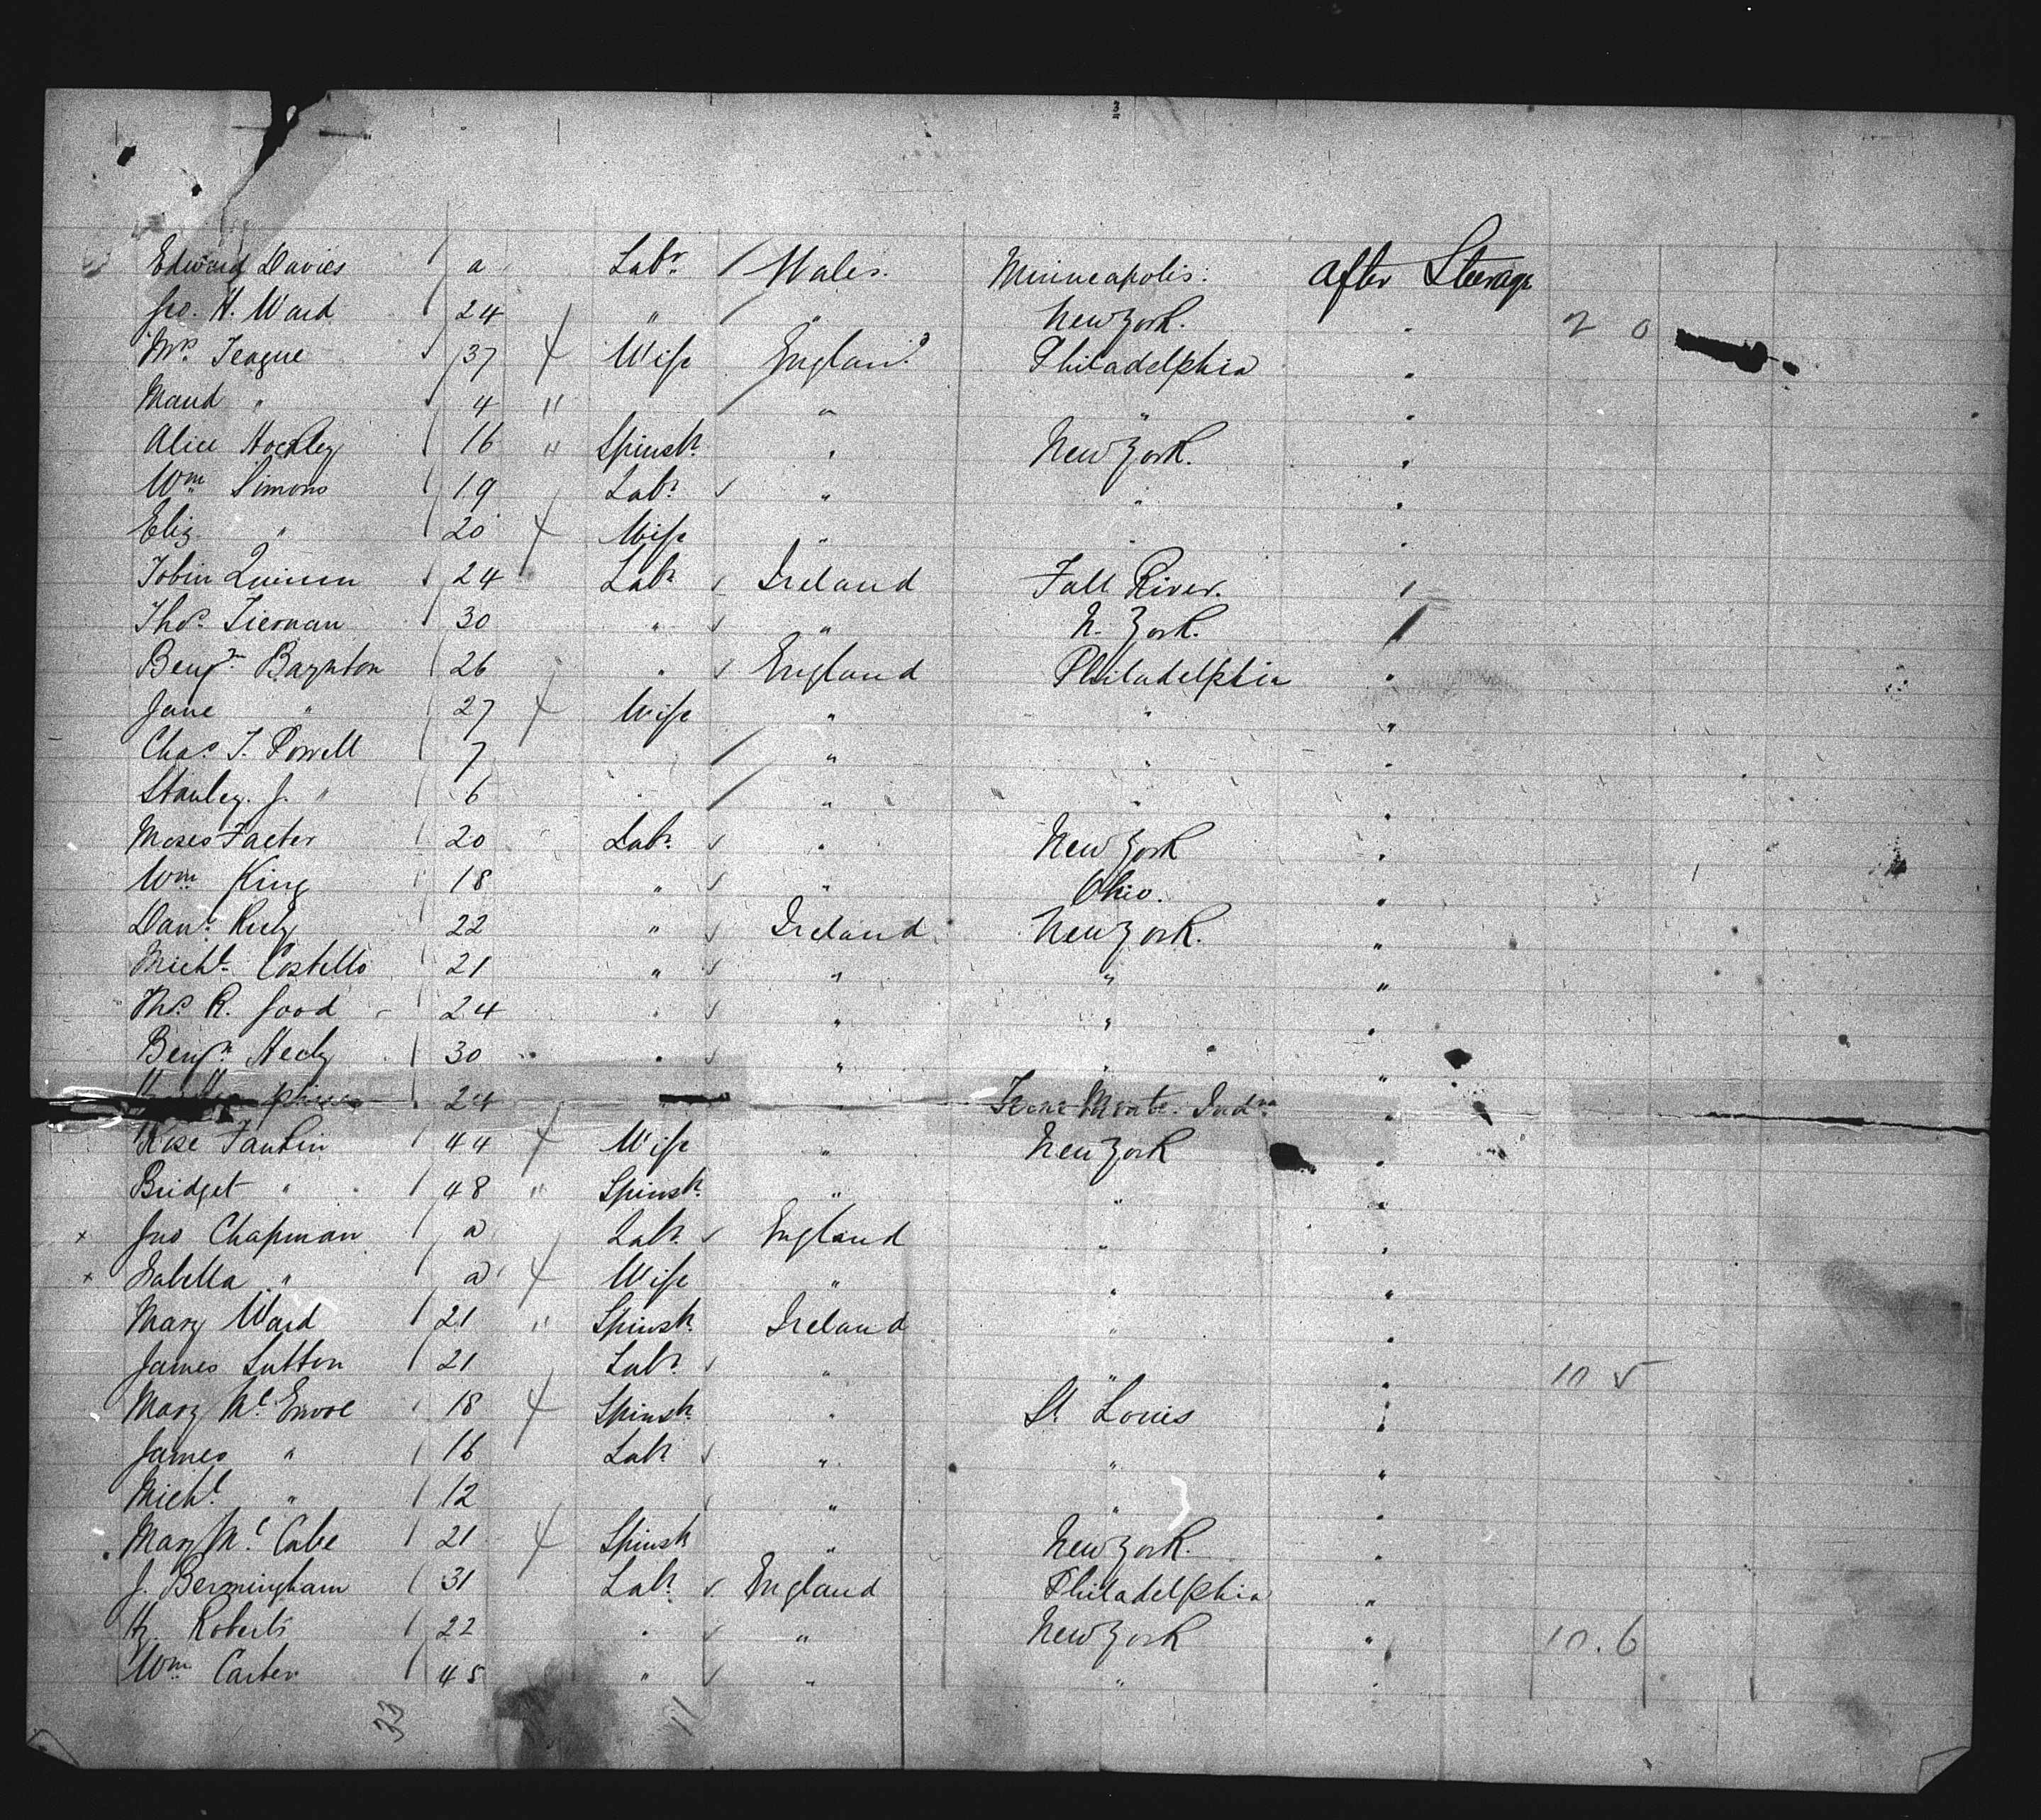 Edward Davies a Labr. Wales. Minneapolis. After Steerage
Jno. H. Ward 24 " " New York. " 2 0
Mrs. Teague 37 Wife England Philadelphia "
Maud " 4 " " " "
Alice Hockley 16 " Spinstr. " New York. "
Wm. Simons 19 Labr. " " "
Eliz. " 20 Wife " " "
Tobin Quinn 24 Labr. Ireland Fall River. "
Thos. Tiernan 30 " " N. York.
Benjn. Baynton 26 " England Philadelphia "
Jane " 27 Wife " " "
Chas. T. Powell 7 " " "
Stanley. J. " 6 " " "
Moses Facter 20 Labr. " New York "
Wm. King 18 " " Ohio. "
Danl. 22 " Ireland New York. "
Michl. Costello 21 " " " "
Thos. R. Good 24 " " " "
Benjn. Healy 30 " " " "
24 Indna. "
Rose 44 Wife " New York "
Bridget " 48 " Spinstr. " " "
x Jno Chapman a Labr. England " "
x Isabella " a Wife " " "
Mary Ward 21 " Spinstr. Ireland " "
James Sutton 21 Labr. " " " 10 5
Mary Mc 18 Spinstr. " St. Louis "
James " 16 Labr. " " "
Michl. " 12 " " "
Mary Mc. Cabe 21 Spinstr. " New York. "
J. Bermingham 31 Labr. England Philadelphia "
Hy. Roberts 22 " " New York " 10.6
Wm. Carter 45 " " " "
33 11